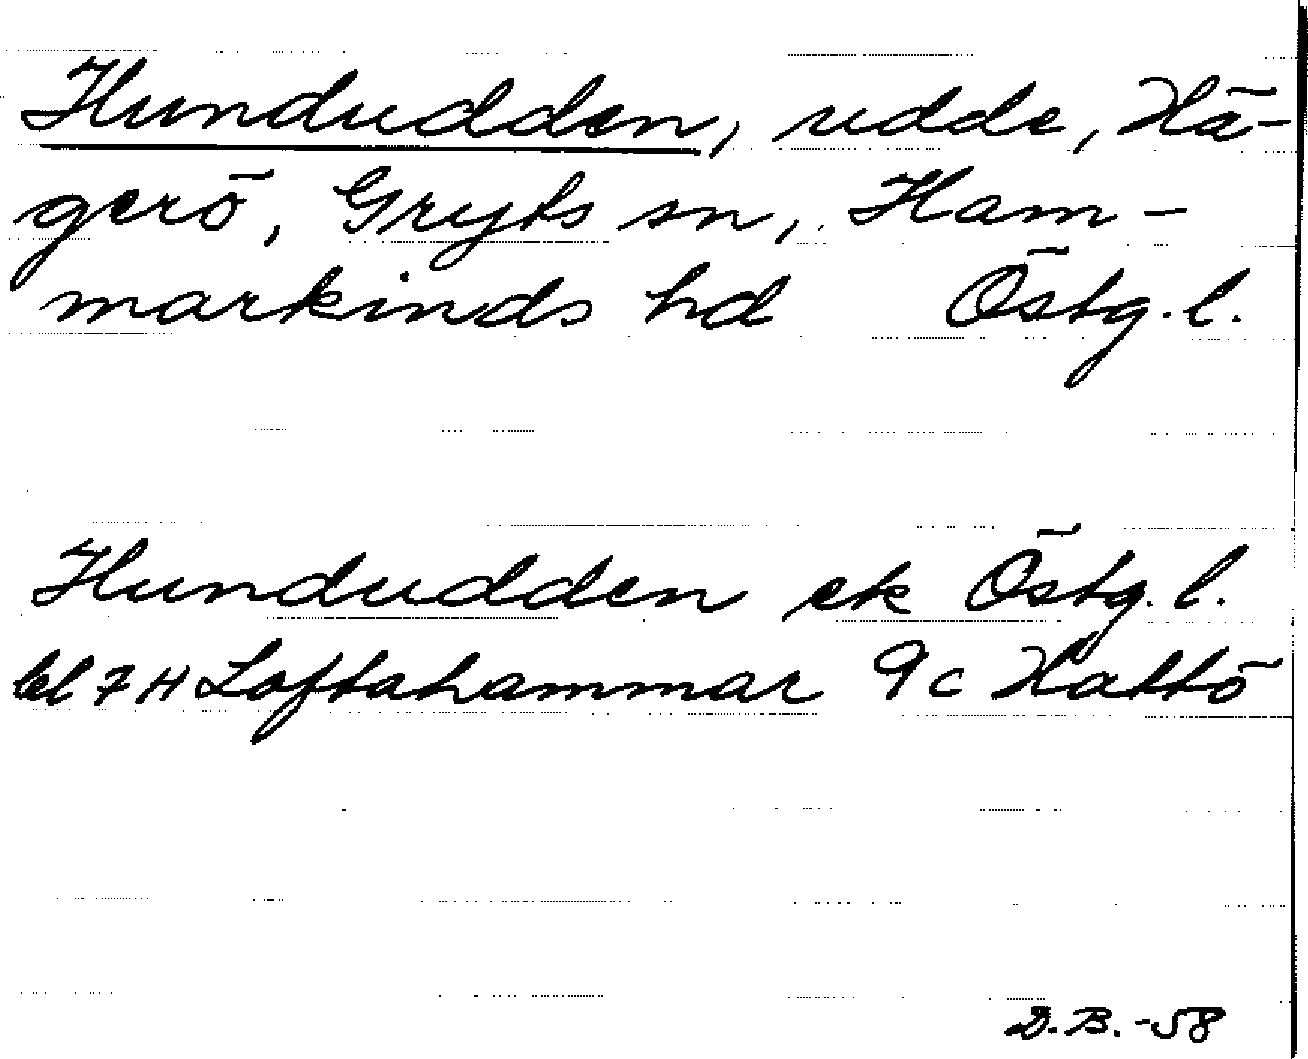 Hundudden, udde, Hä-
gerö, Gryts sn, Ham-
markinds hd Östg. l.
Hundudden ek Östg. l.
bl 7H Loftahammar 9c Hattö
D.B. -58